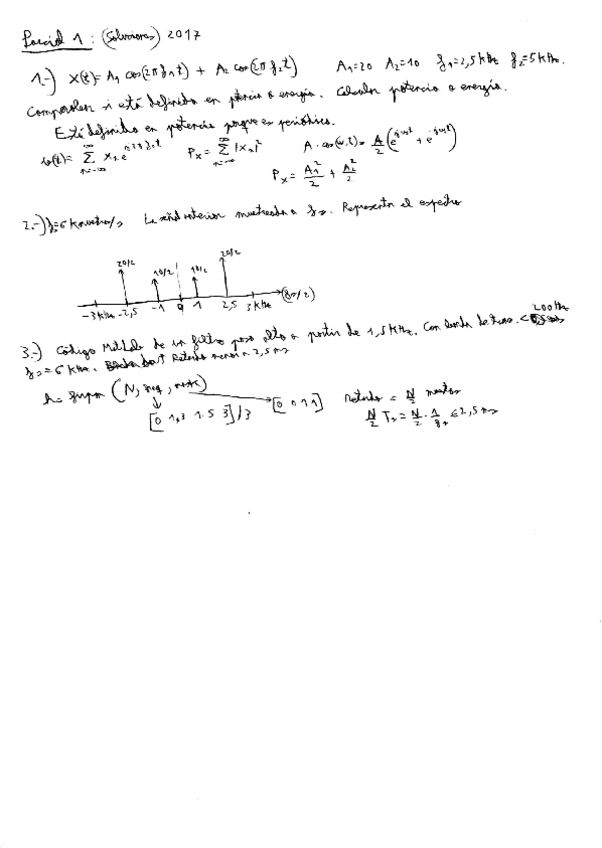 Parcial 1 : (Soluciones) 2017
1-) X(t)= A₁ cos(2π f₁ t) + A₂ cos(2π f₂ t) A₁=20 A₂=10 f₁=2,5 kHz f₂=5 kHz.
Comprobar si está definida en potencia o energía. Calcular potencia o energía.
Está definida en potencia porque es periódica.
x(t)= Σ xₙ e Pₓ = Σ |xₙ|² A·cos(ω₀t)= A/2 (e^{jω₀t} + e^{-jω₀t})
Pₓ = A₁²/2 + A₂²/2
2.-) fs=6 kmuestras/s La señal anterior muestreada a fs. Representa el espectro
20/2 10/2 10/2 20/2
-3 kHz -2,5 -1 0 1 2,5 3 kHz (fs/2)
3.-) Código MatLab de un filtro paso alto a partir de 1,5 kHz. Con banda de trans. < 200 Hz
fs = 6 kHz. Retardo menor a 2,5 ms
h= (N, freq, )
[0 1,3 1.5 3]/3 [0 0 1 1] retardo = N/2 muestras
N/2 Ts = N/2 · 1/fs ≤ 2,5 ms